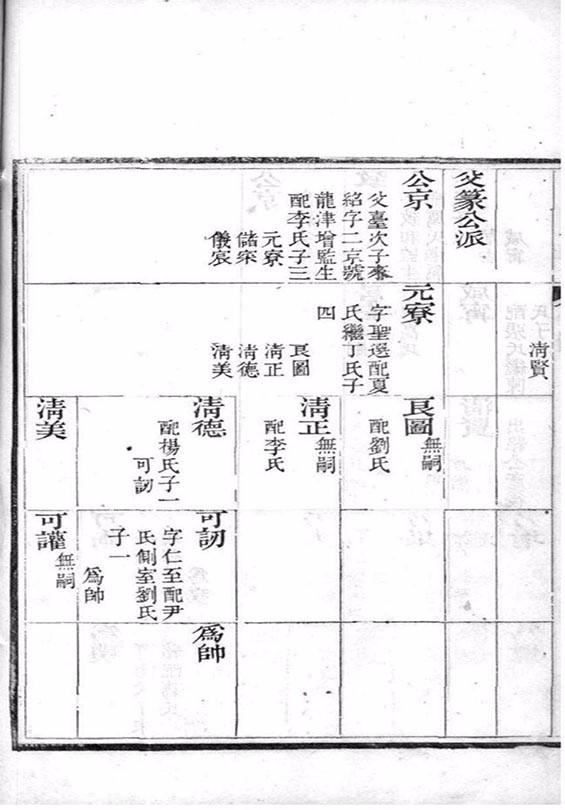 清賢
文篆公派
公京
文臺次子奉
紹字二京號
龍津增監生
配李氏子三
元寮
儲寀
儀宸
元寮
字聖選配夏
氏繼丁氏子
四
良圖
清正
清德
清美
良圖
無嗣
配劉氏
清正
無嗣
配李氏
清德
配楊氏子一
可訒
清美
可訒
字仁至配尹
氏側室劉氏
子一
為帥
可讙
無嗣
為帥